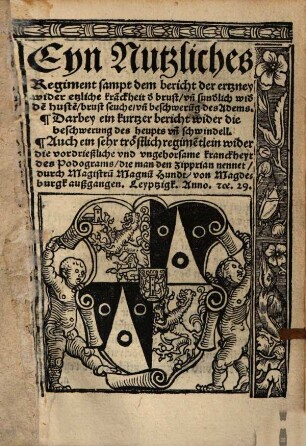 Eyn Nutzliches
Regiment sampt dem bericht der ertzney
wider etzliche kräckheit d̕ brust/vñ sundlich wid̕
de hustē/brust seuche/vñ beschwerūg des Adems.
¶ Darbey ein kurtzer bericht wider die
beschwerung des heupts vñ schwindell.
¶ Auch ein sehr tröstlich regimētlein wider
die vordrießliche vnd vngehorsame kranckheyt
des Podograms/die man den Zipprian nennet/
durch Magistrū Magnū Hundt/von Magde-
burgk außgangen. Leyptzigk. Anno. ⁊c. 29.